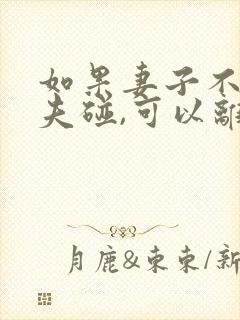 如果妻子不
夫碰,可以離
月鹿&東東/新